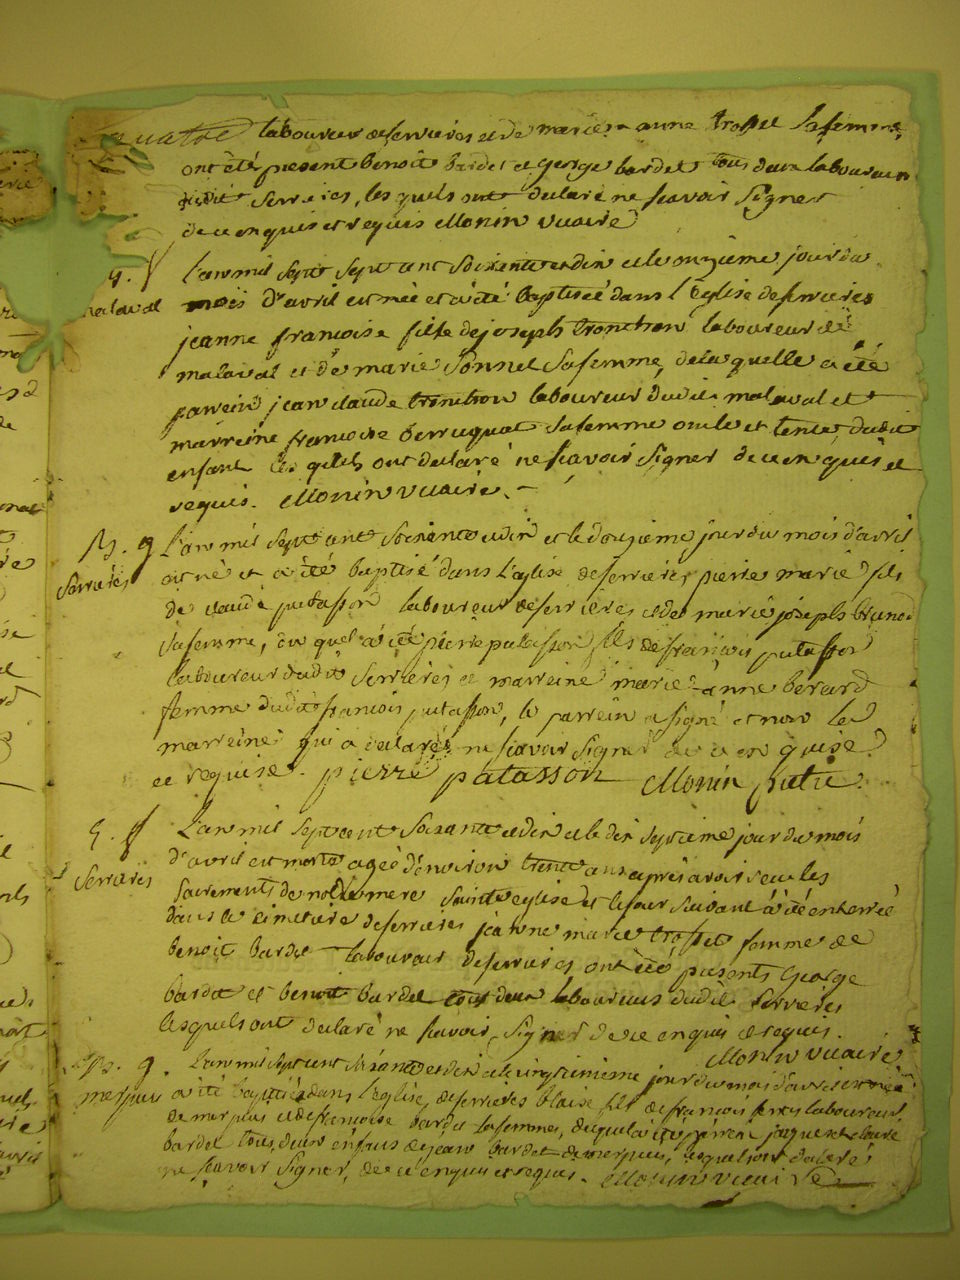 quatre
laboureur de serrieres et de marie anne trosset sa femme
ont été present benoit bardet et george bardet tous deux laboureurs
dudit serrieres, les quels ont declaré ne scavoir signer
de ce enquis et requis Monin vicaire
g. f
malaval
L'an mil sept cent soixante et dix et le onzieme jour du
mois d'avril est née et a été baptiseé dans l'église de serrieres
jeanne francoise fille de joseph tronchon laboureur de
malaval et de marie sonnet sa femme, de laquelle a été
parrein jean claude tronchon laboureur dudit malaval et
marreine francoise berruquat sa femme oncle et tente dudit
enfant les quels ont declaré ne scavoir signer de ce enquis et
requis. Monin vicaire
B. g
serrieres
L'an mil sept cent soixante et dix et le douzieme jour du mois d'avril
est né et a été baptisé dans l'église de serrieres pierre marie fils
de claude putasson laboureur de serrieres et de marie joseph brunod
sa femme, du quel a été pierre putasson fils de francois putasson
laboureur dudit serrieres et marreine marie anne berard
femme dudit francois putasson, le parrein a signé et non la
marreine qui a declaré ne scavoir signer de ce en quise
et requise. pierre patasson Monin vicaire
S. f
serrieres
L'an mil sept cent soixante et dix et le dix septieme jour du mois
d'avril est morte ageé d'environ trente ans apres avoir receu les
sacrements de notre mere sainte eglise et le jour suivant a été enterreé
dans le cimetiere de serrieres jeanne marie trosset femme de
benoit bardet laboureur de serrieres ont été presents George
bardet et benoit bardet tous deux laboureurs dudit serrieres
lesquels ont declaré ne scavoir signer de ce enquis et requis.
Monin vicaire
B. g.
merpuis
L'an mil sept cent soixante et dix et le vingt sixieme jour du mois d'avril est né et
a été baptisé dans l'église de serrieres blaise fils de francois laboureur
de merpuis et de francoise bardet sa femme, duquel a été parrein jaques et claire
bardet tous deux enfans de jean bardet de merpuis, lesquels ont declaré
ne scavoir signer, de ce enquis et requis. Monin vicaire